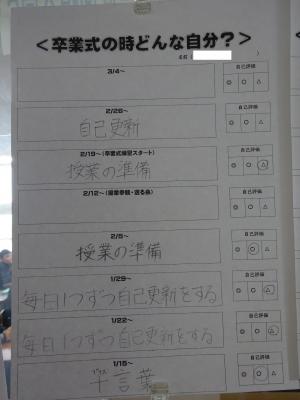 ＜卒業式の時どんな自分？＞
名前
3/4～
自己評価
◎ ○ △
2/26～
自己評価
自己更新
◎ ○ △
2/19～(卒業式練習スタート)
自己評価
授業の準備
◎ ○ △
2/12～(授業参観・送る会)
自己評価
◎ ○ △
2/5～
自己評価
授業の準備
◎ ○ △
1/29～
自己評価
毎日1つずつ自己更新をする
◎ ○ △
1/22～
自己評価
毎日1つずつ自己更新をする
◎ ○ △
1/15～
自己評価
プラス
十言葉
◎ ○ △